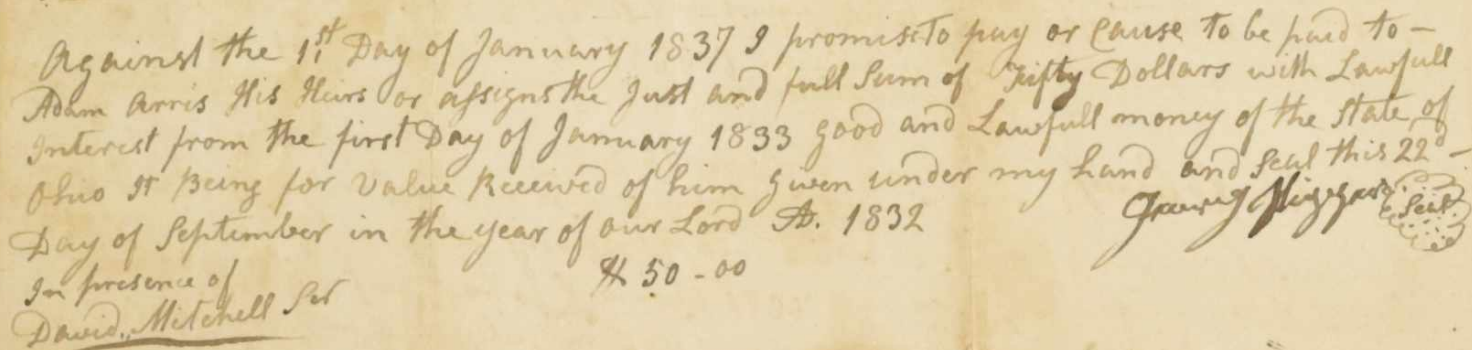 Against the 1st Day of January 1837 I promise to pay or Cause to be paid to -
Adam Arris His Heirs or assigns the Just and full Sum of Fifty Dollars with Lawfull
Interest from the first Day of January 1833 good and Lawfull money of the State of
Ohio It Being for Value Received of him Given under my hand and Seal this 22d -
Day of September in the year of our Lord AD. 1832
Seal
In presence of
$ 50 - 00
David Mitchell